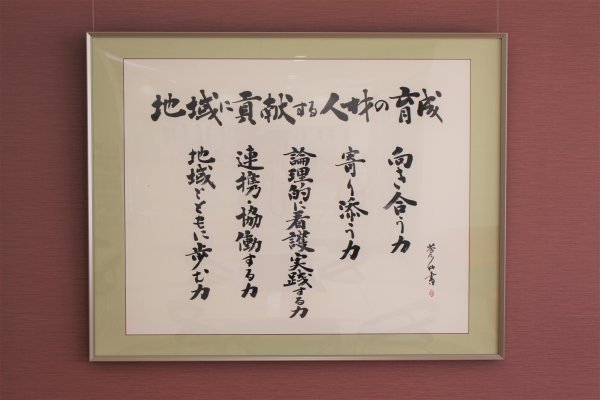 地域に貢献する人材の育成
向き合う力
寄り添う力
論理的に看護実践する力
連携・協働する力
地域とともに歩む力